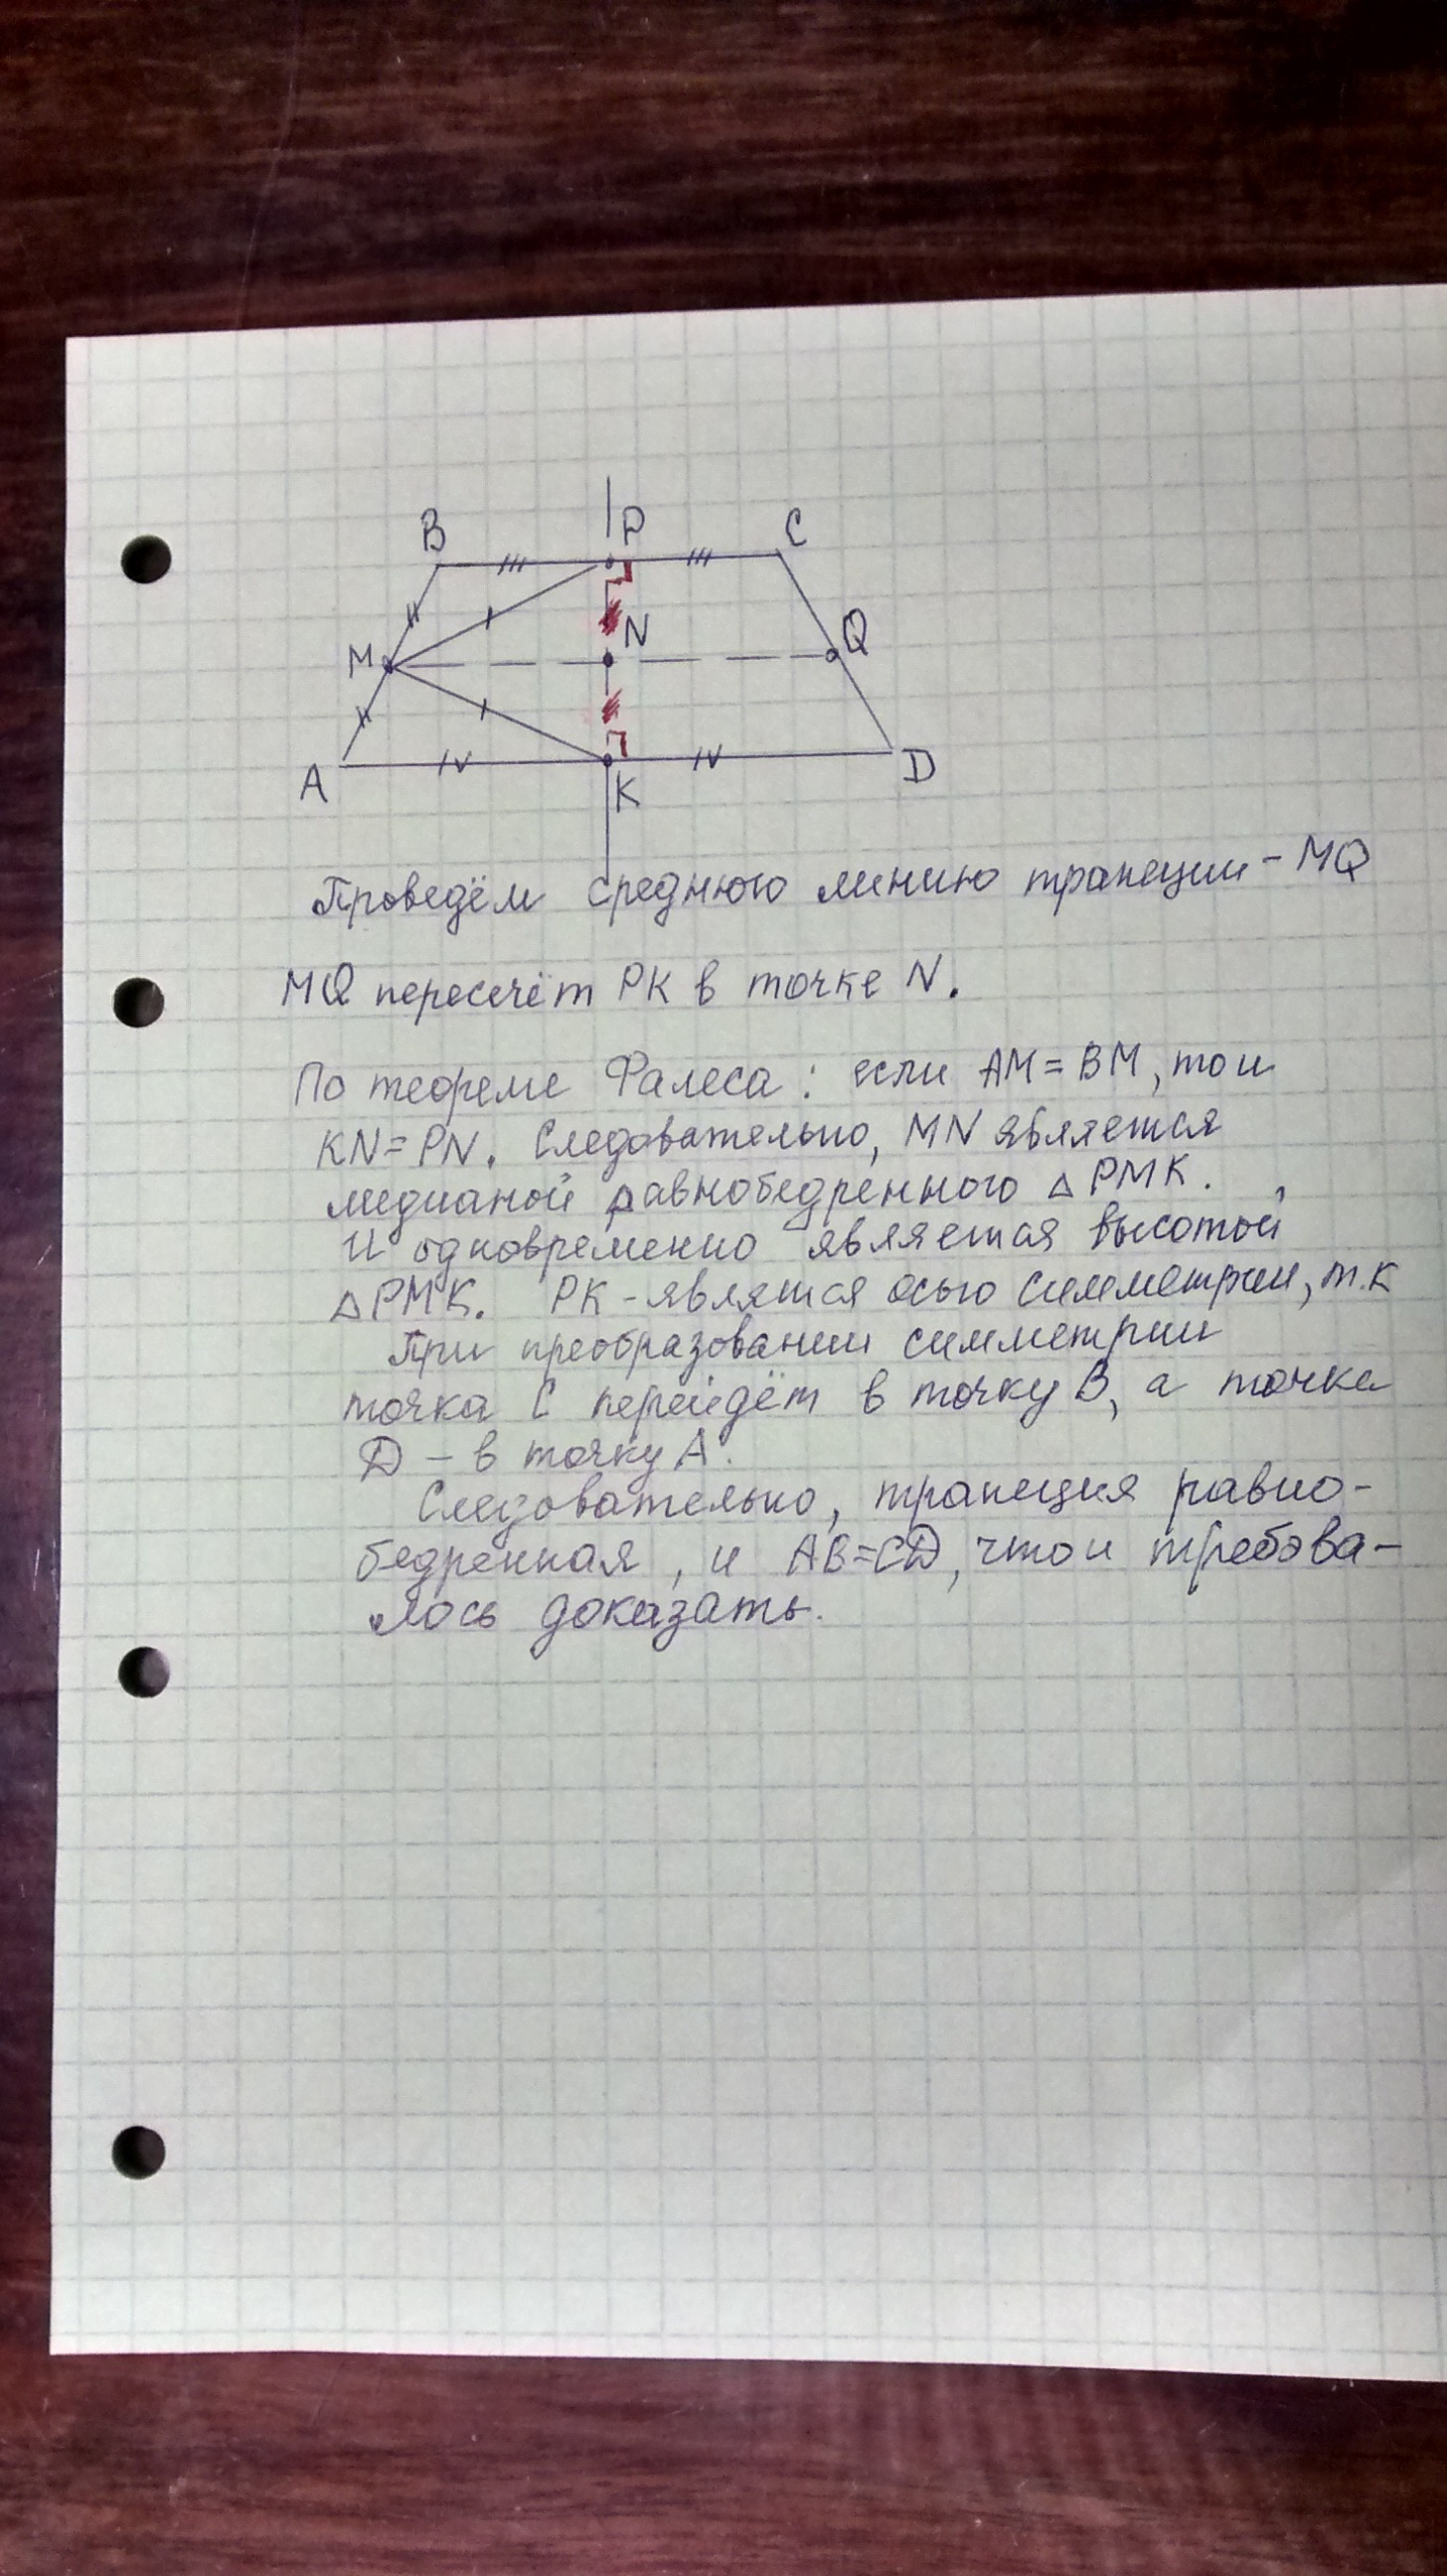 B P C
M N Q
A K D
Проведём среднюю линию трапеции - MQ
MQ пересечёт PK в точке N.
По теореме Фалеса: если AM = BM, то и
KN = PN. Следовательно, MN является
медианой равнобедренного △ PMK.
И одновременно является высотой
△ PMK. PK - является осью симметрии, т.к
При преобразовании симметрии
точка C перейдёт в точку B, а точка
D - в точку A.
Следовательно, трапеция равно-
бедренная, и AB=CD, что и требова-
лось доказать.